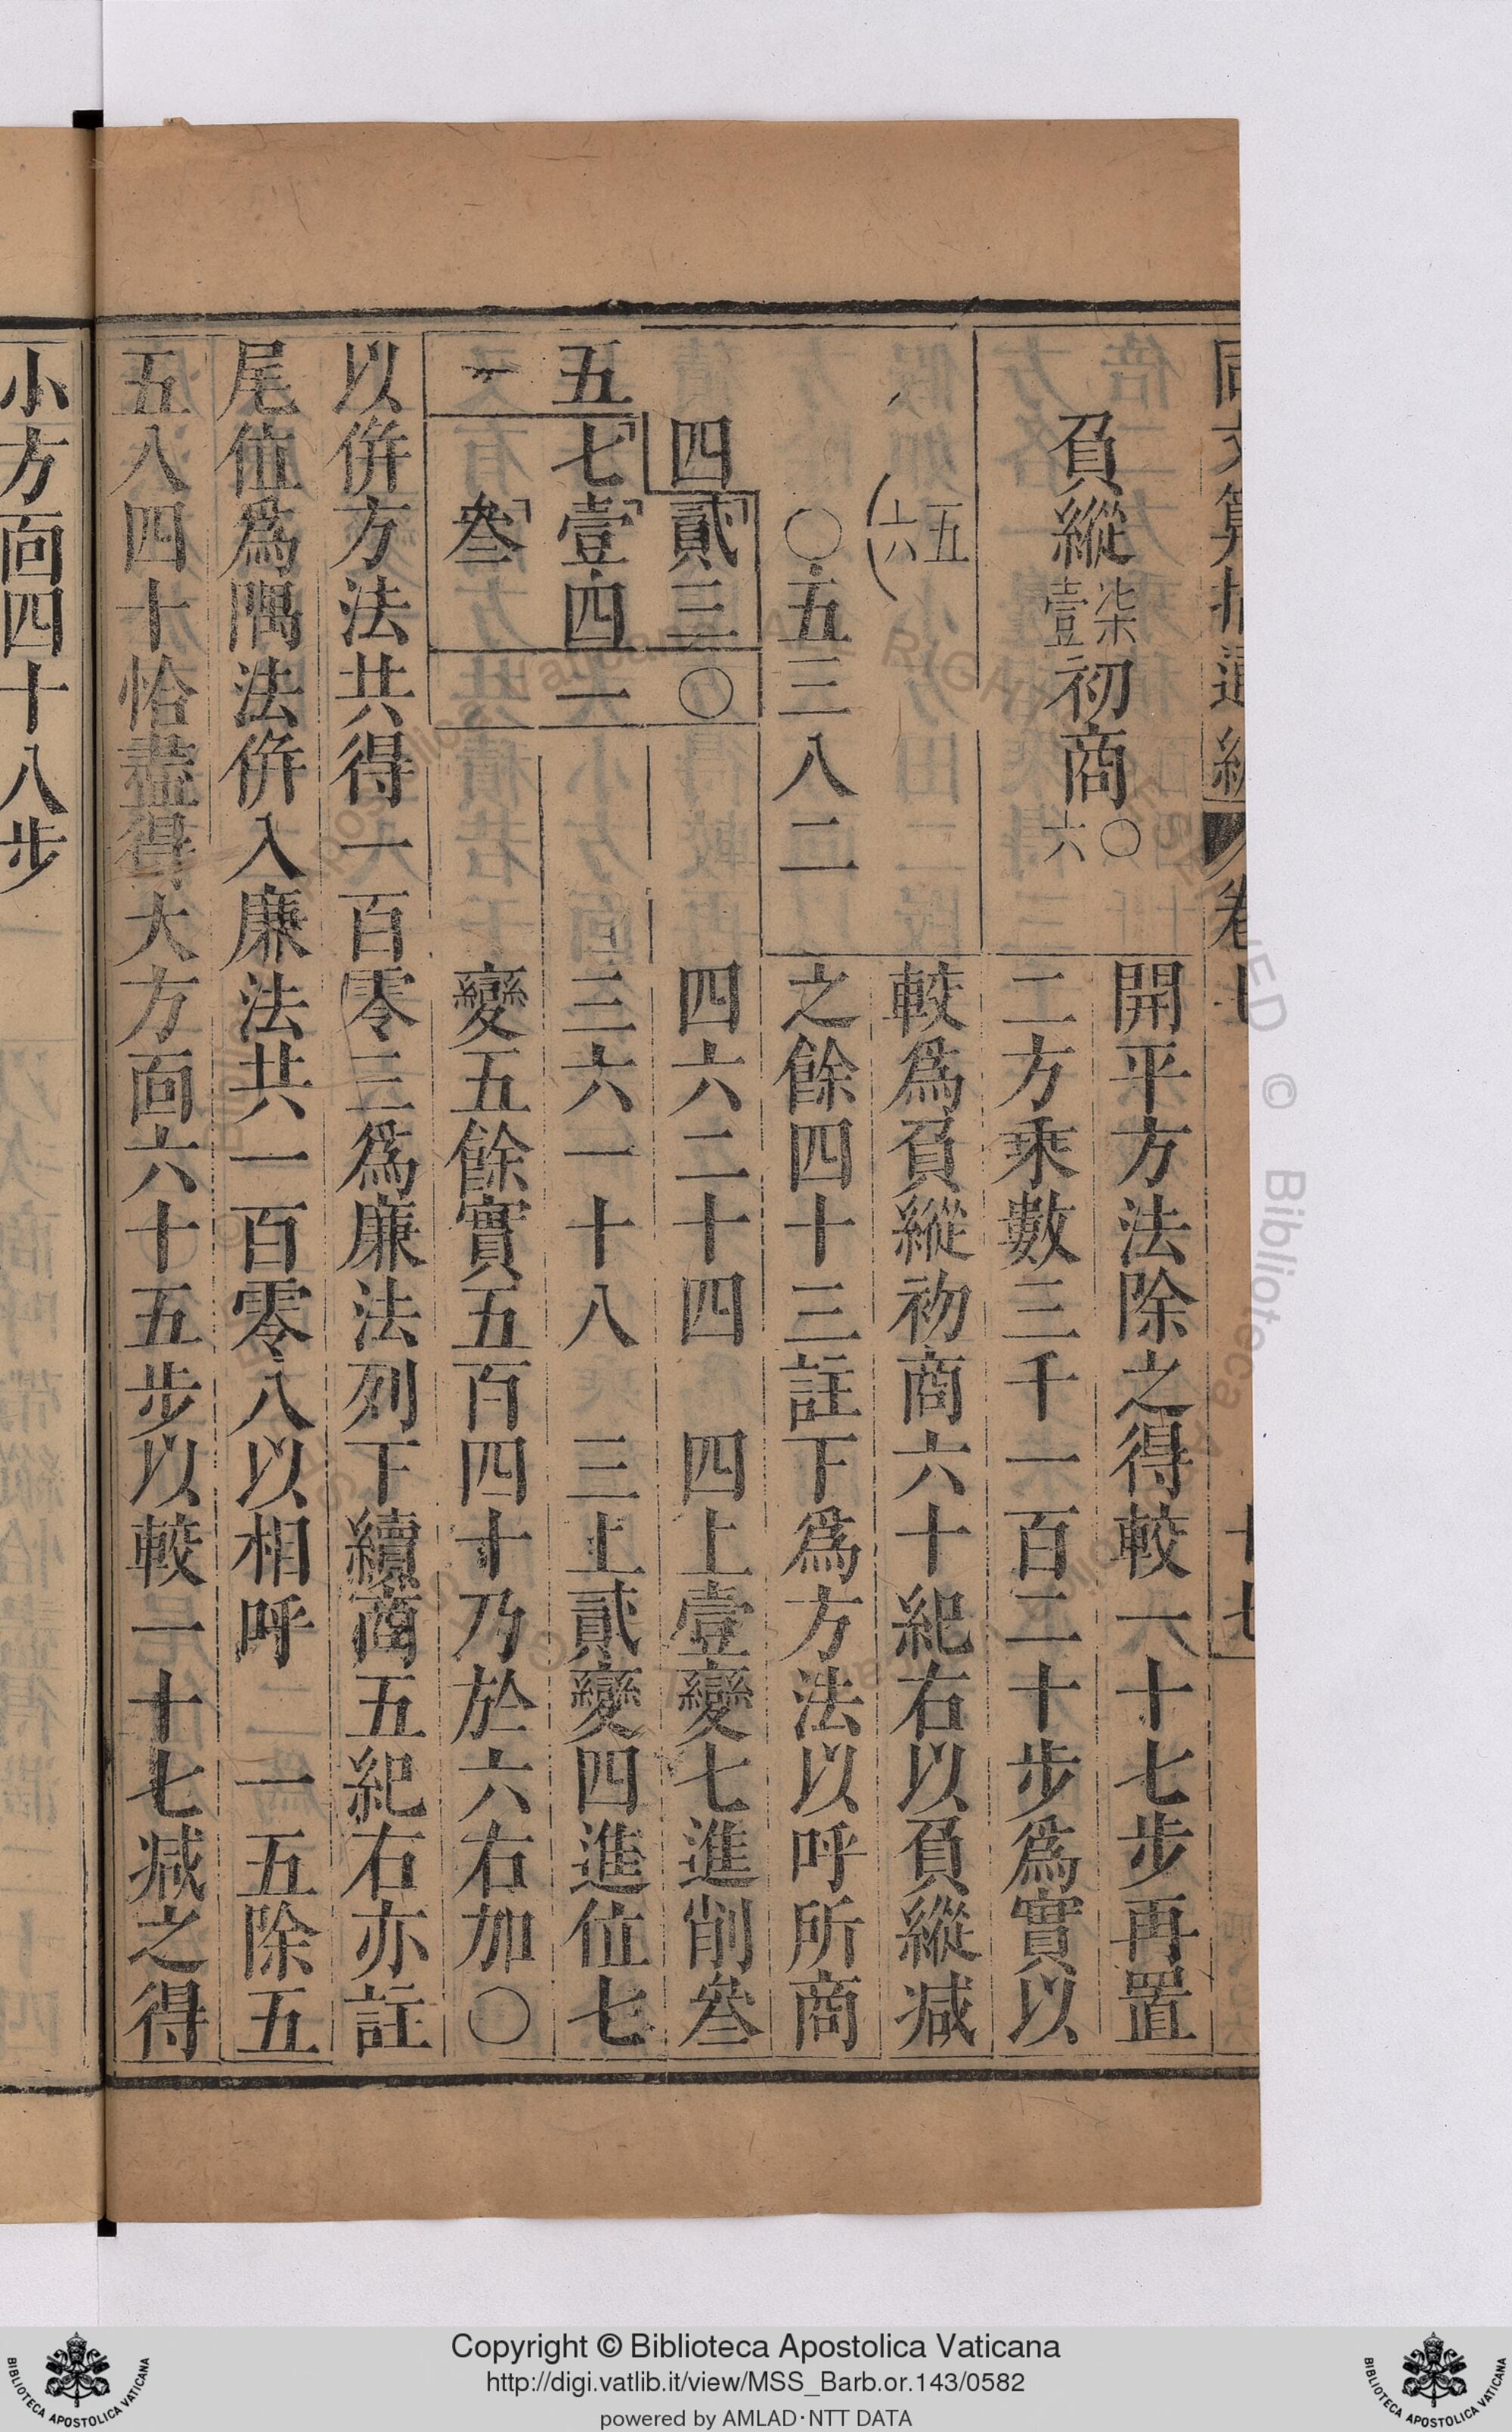 開平方法除之得較一十七步再置
二方乘數三千一百二十步爲實以
較爲負縱初商六十紀右以負縱減
之餘四十三註下爲方法以呼所商
四六二十四　四上壹變七進削叄
三六一十八　三上貳變四進位七
變五餘實五百四十乃於六右加〇
以併方法共得一百零三爲廉法列下續商五紀右亦註
尾位爲隅法併入廉法共一百零八以相呼　一五除五
五八四十恰盡得大方面六十五步以較一十七減之得
小方面四十八步
負縱柒壹初商〇六
五六
〇五三八二
四貳三〇
五七壹四一
一叄
Copyright © Biblioteca Apostolica Vaticana
http://digi.vatlib.it/view/MSS_Barb.or.143/0582
powered by AMLAD·NTT DATA
BIBLIOTECA APOSTOLICA VATICANA
BIBLIOTECA APOSTOLICA VATICANA